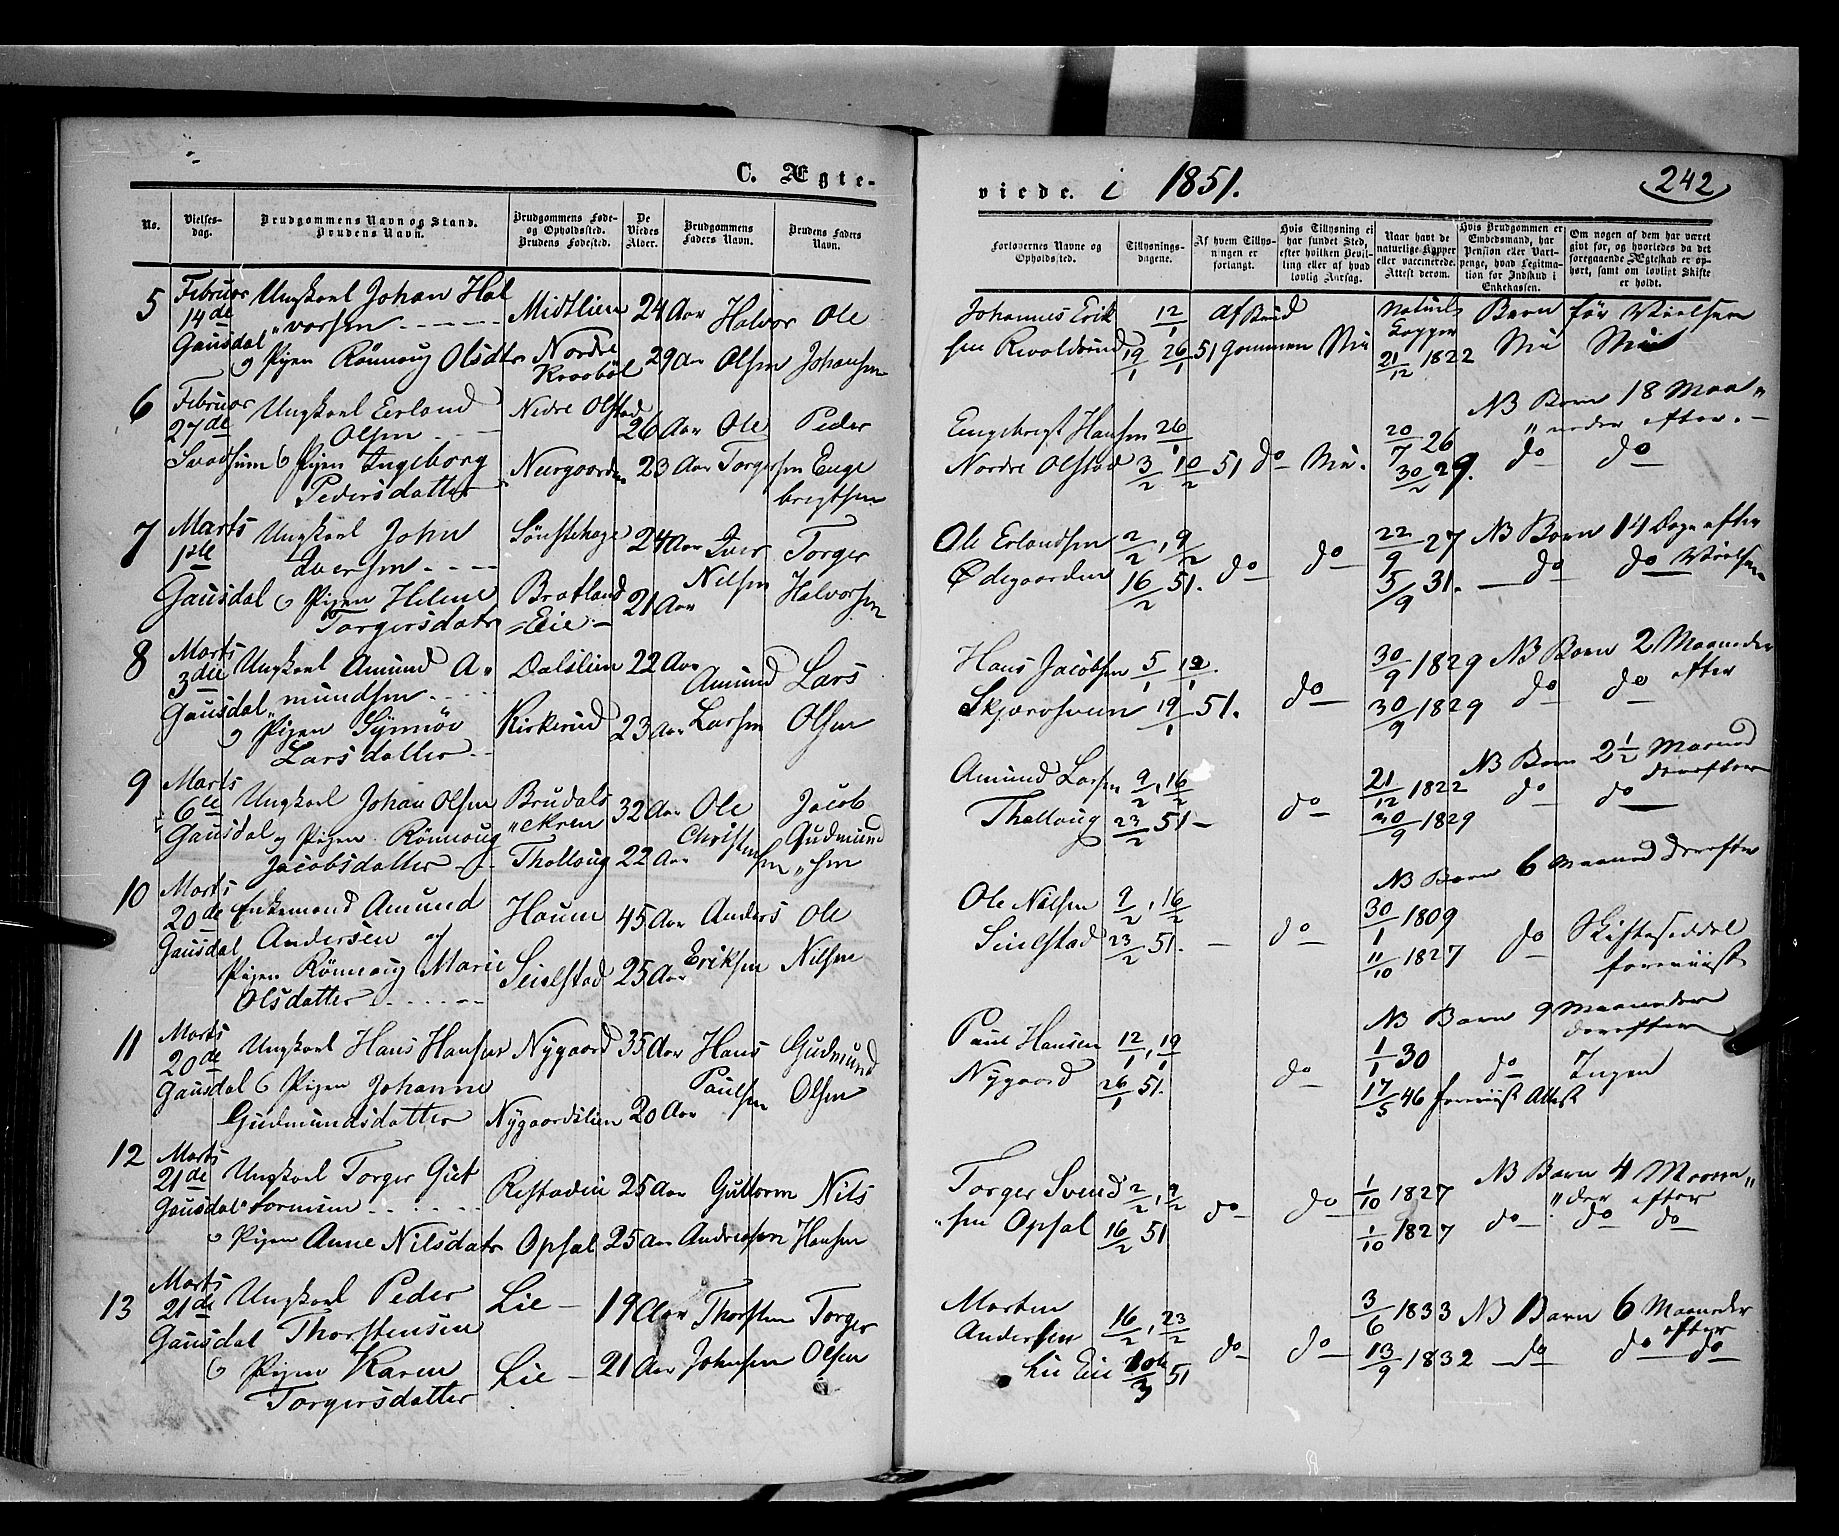 C. Ægte-
No.
Vielses-
dag.
Brudgommens Navn og Stand.
Brudens Navn.
Brudgommens Føde-
og Opholdssted.
Brudens Fødested.
De
Viedes
Alder.
Brudgommens
Faders Navn.
Brudens Faders
Navn.
5 Februar Ungkarl Johan Hal
14de „vorsen Midtlien 24 Aar Halvor Ole
Gausdal
og Pigen Rönnoug Olsdtr Nordre 29 Aar Olsen Johansen
6 Februar Ungkarl Erland Nedre Olstad
27de Olsen 26 Aar Ole Peder
Pigen Ingeborg 23 Aar Torgersen Enge
Pedersdatter brigtsen
7 Marts Ungkarl John 24 Aar Iver Torger
1ste Iversen Nilsen
Gausdal Pigen Helene Bratland 21 Aar Halvorsen
Torgersdatr Eie
8 Marts Ungkarl Amund A= Dalslien 22 Aar
3die mundsen Amund Lars
Gausdal
og Pigen Synnöv Kirkerud 23 Aar Larsen Olsen
Larsdatter
9 Marts
6te Ungkarl Johan Olsen Brudals 32 Aar Ole Jacob
Gausdal og Pigen Rönnoug „ekren Christen Gudmund
Jacobsdatter Thalloug 22 Aar sen „sen
10 Marts
20de Enkemand Amund Haum 45 Aar Anders Ole
Gausdal Andersen og
Pigen Rönnoug Marie Seielstad 25 Aar Eriksen Nilsen
Olsdatter
11 Marts
20de Ungkarl Hans Hansen Nygaard 35 Aar Hans Gudmund
Gausdal Pigen Johanne Paulsen Olsen
Gudmundsdatter Nygaardslien 20 Aar
12 Marts
21de Ungkarl Torger Gut 25 Aar Guttorm Nils
Gausdal „tormsen
Pigen Anne Nilsdatr Opsal 25 Aar Andreasen Hansen
13 Marts
21de Ungkarl Peder Lie 19 Aar Thorsten Torger
Gausdal Thorstensen
Pigen Karen Lie 21 Aar Johnsen Olsen
Torgersdatter
viede. i 1851.
242
Forlovernes Navne og
Opholdssted.
Tillysnings-
dagene.
Af hvem Tillys-
ningen er
forlangt.
Hvis Tillysning ei
har fundet Sted,
efter hvilken Bevil-
ling eller af hvad
lovlig Aarsag.
Naar havt de
naturlige Kopper
eller vaccinerede.
Attest derom.
Hvis Brudgommen er
Embedsmand, har
Pension eller Vart-
penge, hvad Legitima-
tion for Indskud i
Enkekassen.
Om nogen af dem har været
givt før, og hvorledes da det
foregaaende Ægteskab er op-
hørt, samt om lovligt Skifte
er holdt.
Johannes Erik 12/1 af Brud Naturl Barn før Vielsen
sen 19/1 26/1 51 gommen Nei Kopper
21/12 1822 Nei Nei
NB Barn 18 Maa„
Engebregt Hansen 26/1 20/7 26 „neder efter.
Nordre Olstad 3/2 10/2 51 do Nei. 30/2 29. do do
Ole Erlandsen 2/2, 9/2 22/9 27 NB Barn 14 Dage efter
Ødegaarden 16/2 51. do do 5/9 31. do do Vielsen
Hans Jacobsen 5/1 12/1 30/9 1829 NB Barn 2 Maaneder
19/1 51. do 30/9 1829 do do efter
NB Barn 2 1/2 Maaned
Amund Larsen 9/2, 16/2 21/12 1822 derefter
Thalloug 23/2 51 do 30/9 1829 do do
NB Barn 6 Maaned derefter
Ole Nilsen 9/2, 16/2 30/1 1809
Seielstad 23/2 51. do 11/10 1827 do Skifteseddel
foreviist
NB Barn 9 Maaneder
derefter
Paul Hansen 12/1, 19/1 1/1 30
Nygaard 26/1 51. do 17/5 46 foreviist Attest do Ingen
Torger Svend 2/2, 9/2 1/10 1827 NB Barn 4 Maane„
„sen Opsal 16/2 51 do do 1/10 1827 „der efter
do do do
Morten 16/2, 23/2 3/6 1833 NB Barn 6 Maaneder
Andersen efter
Lie Eie 51 do do 13/9 1832 do do do